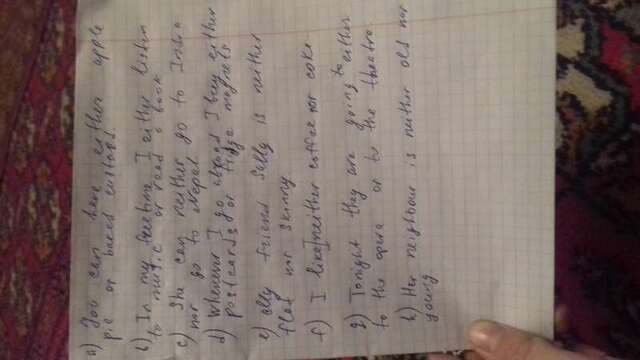 a) You can have either apple
pie or baked custard.
b) In my freetime I either listen
to music or read a book
c) She can neither go to India
nor go to Nepal
d) Whenever I go abroad I buy either
postcards or magnets
e) My friend Sally is neither
nor skinny
f) I like neither coffee nor coke
g) Tonight they are going to either
to the opera or to the theatre.
h) Her neighbour is neither old nor
young